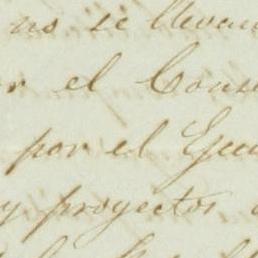 no se llevan
or el Cons
por el Gu
y proyectos